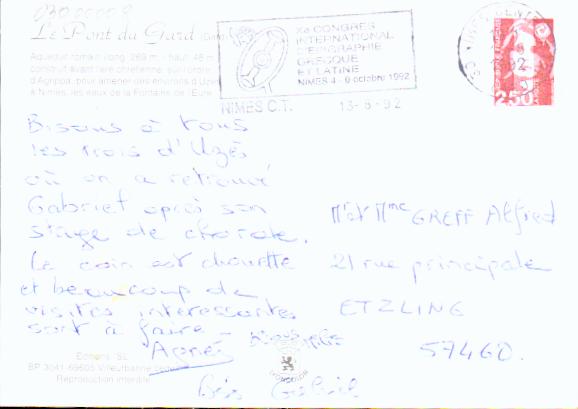 Le Pont du Gard
Aqueduc romain (long. 269 m - haut. 48 m
construit avant l'ère chrétienne, sur l'ordre
d'Agrippa, pour amener des environs d'Uzès
à Nîmes, les eaux de la Fontaine de l'Eure
Xe CONGRES
INTERNATIONAL
D'EPIGRAPHIE
GRECQUE
ET LATINE
NIMES 4-9 octobre 1992
NIMES C.T. 13-8-92
2,50
Bisous à tous
les trois d'Uzés
où on a retrouvé
Gabriel après son
stage de chorale.
Le coin est chouette
et beaucoup de
visites interessantes
sont à faire -
Agnés
Bis Gabriel
Mr et Mme GREFF Alfred
21 rue principale
ETZLING
57460.
Editions SL
BP 3041-69605 Villeurbanne
Reproduction interdite